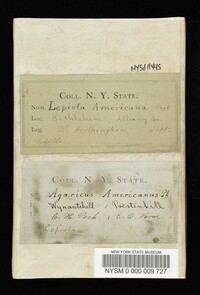 NYSf1445
COLL. N. Y. STATE.
Nom. Lepiota Americana Peck
Loc. Bethlehem Albany Co.
Leg. Worthington Sept.
COLL. N. Y. STATE.
Agaricus Americanus P.
Wynantskill Poestenkill
C. H. Peck
Lepiota
NEW YORK STATE MUSEUM
NYSM 0 000 009 727